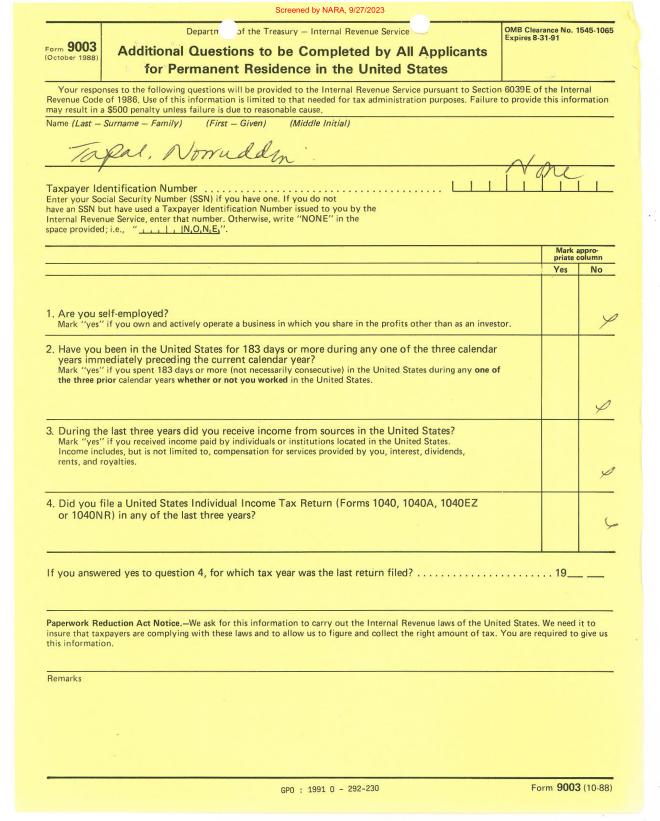 Screened by NARA, 9/27/2023
Form 9003
(October 1988)
Departn of the Treasury — Internal Revenue Service
Additional Questions to be Completed by All Applicants
for Permanent Residence in the United States
OMB Clearance No. 1545-1065
Expires 8-31-91
Your responses to the following questions will be provided to the Internal Revenue Service pursuant to Section 6039E of the Internal
Revenue Code of 1986. Use of this information is limited to that needed for tax administration purposes. Failure to provide this information
may result in a $500 penalty unless failure is due to reasonable cause.
Name (Last — Surname — Family) (First — Given) (Middle Initial)
Tapal, Norruddin
None
Taxpayer Identification Number
Enter your Social Security Number (SSN) if you have one. If you do not
have an SSN but have used a Taxpayer Identification Number issued to you by the
Internal Revenue Service, enter that number. Otherwise, write "NONE" in the
space provided; i.e., " N,O,N,E, ".
Mark appro-
priate column
Yes No
1. Are you self-employed?
Mark "yes" if you own and actively operate a business in which you share in the profits other than as an investor.
2. Have you been in the United States for 183 days or more during any one of the three calendar
years immediately preceding the current calendar year?
Mark "yes" if you spent 183 days or more (not necessarily consecutive) in the United States during any one of
the three prior calendar years whether or not you worked in the United States.
3. During the last three years did you receive income from sources in the United States?
Mark "yes" if you received income paid by individuals or institutions located in the United States.
Income includes, but is not limited to, compensation for services provided by you, interest, dividends,
rents, and royalties.
4. Did you file a United States Individual Income Tax Return (Forms 1040, 1040A, 1040EZ
or 1040NR) in any of the last three years?
If you answered yes to question 4, for which tax year was the last return filed? 19__ __
Paperwork Reduction Act Notice.—We ask for this information to carry out the Internal Revenue laws of the United States. We need it to
insure that taxpayers are complying with these laws and to allow us to figure and collect the right amount of tax. You are required to give us
this information.
Remarks
GPO : 1991 O - 292-230
Form 9003 (10-88)